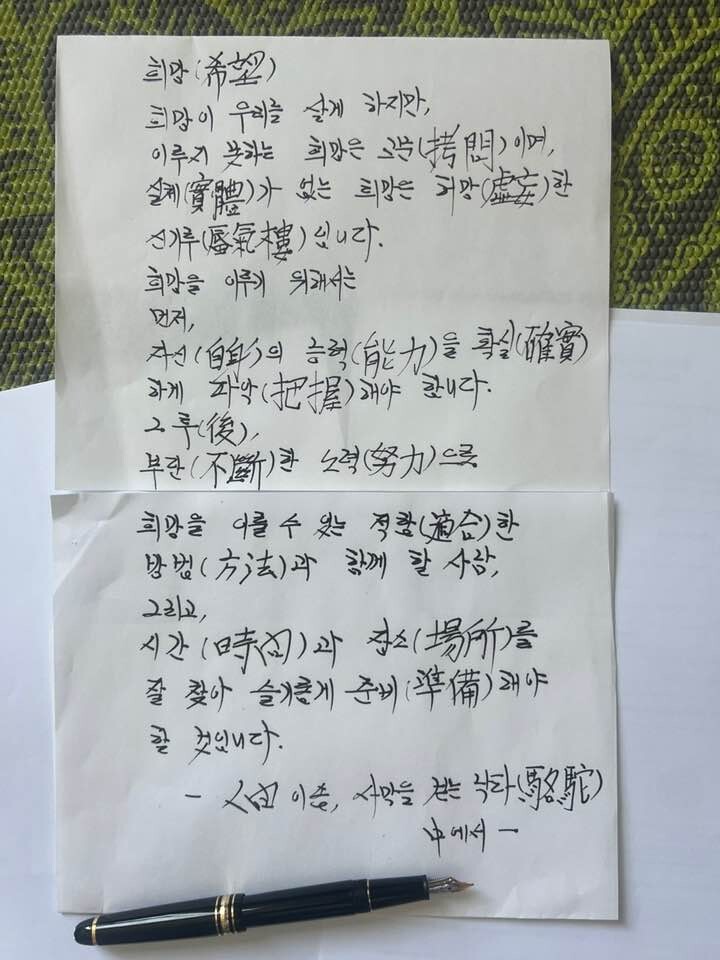 희망(希望)
희망이 우리를 살게 하지만,
이루지 못하는 희망은 고문(拷問)이며,
실체(實體)가 없는 희망은 허망(虛妄)한
신기루(蜃氣樓)입니다.
희망을 이루기 위해서는
먼저,
자신(自身)의 능력(能力)을 확실(確實)
하게 파악(把握)해야 합니다.
그 후(後),
부단(不斷)한 노력(努力)으로
희망을 이룰 수 있는 적합(適合)한
방법(方法)과 함께 할 사람,
그리고,
시간(時间)과 장소(場所)를
잘 찾아 슬기롭게 준비(準備)해야
할 것입니다.
- 人间 이즘, 사막을 걷는 낙타(駱駝)
中에서 -